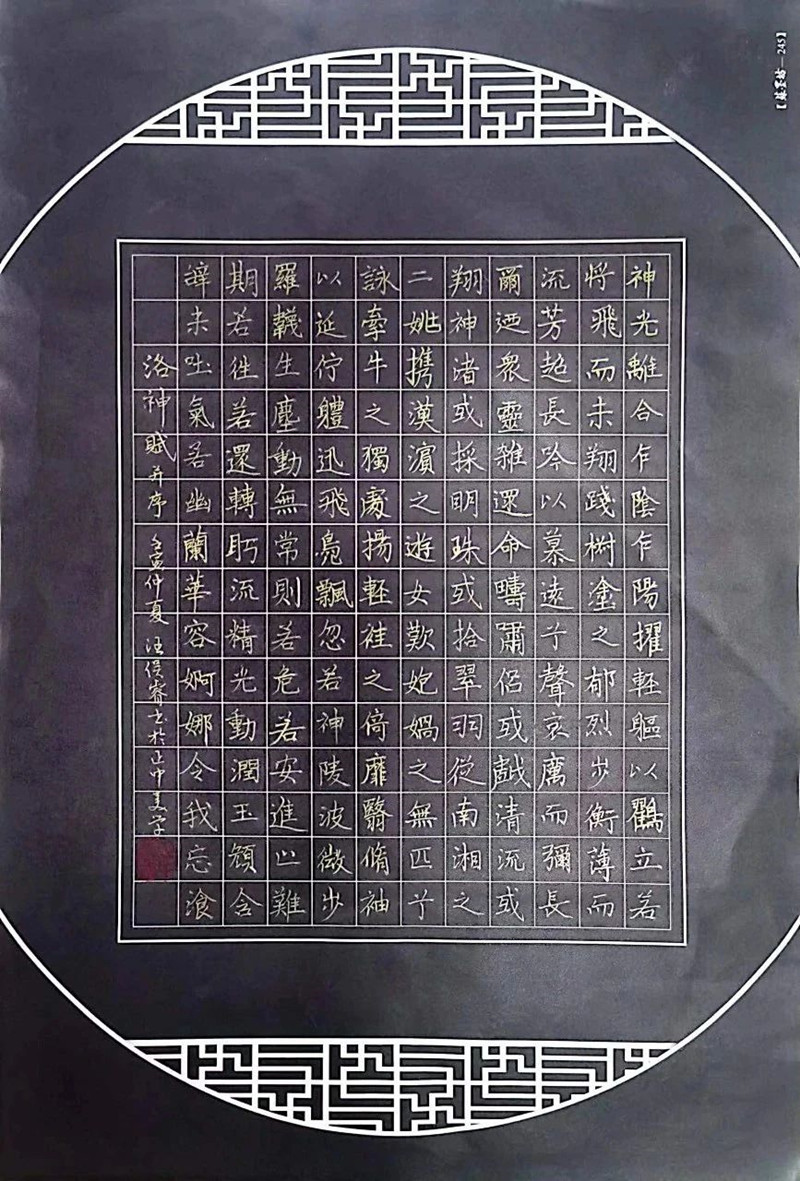 【蘇墨坊—245】
神光離合乍陰乍陽擢輕軀以鶴立若
將飛而未翔踐椒塗之郁烈步衡薄而
流芳超長吟以慕遠兮聲哀厲而彌長
爾迺眾靈雜遝命疇嘯侶或戲清流或
翔神渚或採明珠或拾翠羽從南湘之
二姚携漢濱之遊女歎媧之無匹兮
詠牽牛之獨處揚輕袿之倚靡翳脩袖
以延佇軆迅飛鳧飄忽若神陵波微步
羅韈生塵動無常則若危若安進止難
期若往若還轉眄流精光動潤玉顏含
辭未吐氣若幽蘭華容婀娜令我忘飡
洛神賦并序 仲夏 汪俊睿書於正中美学